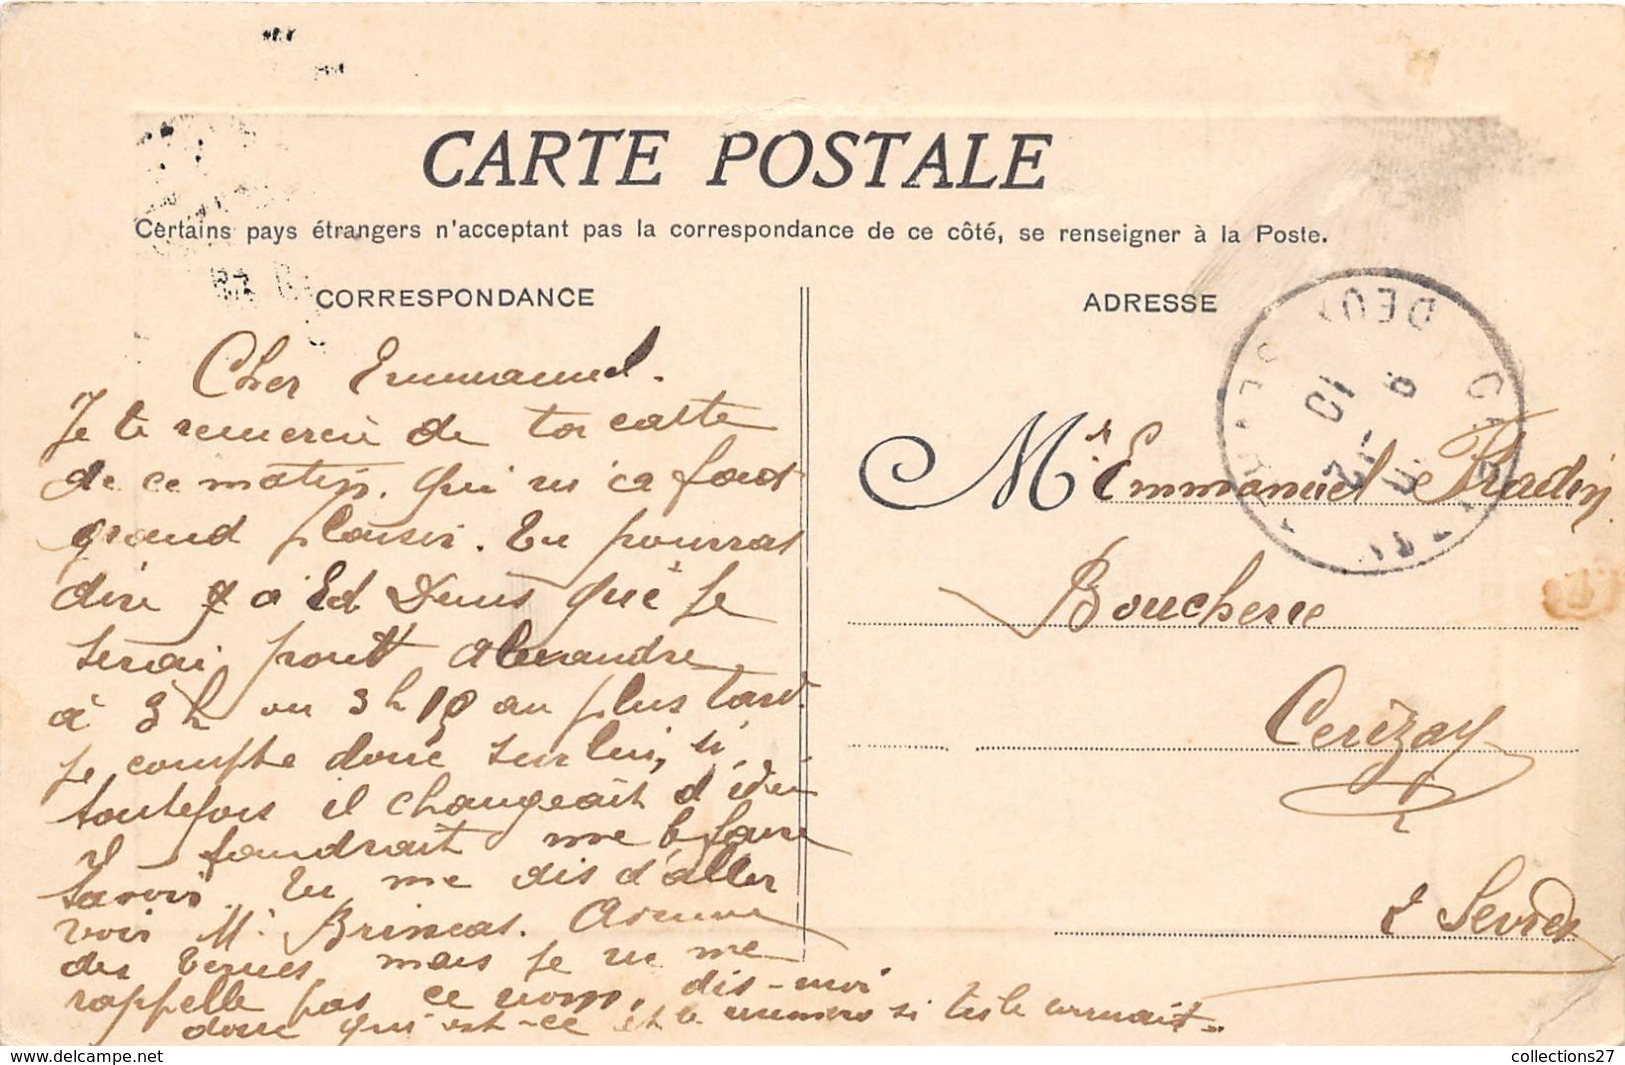 CARTE POSTALE
Certains pays étrangers n'acceptant pas la correspondance de ce côté, se renseigner à la Poste.
CORRESPONDANCE
Cher Emmanuel.
Je te remercie de ta carte
de ce matin. Qui m'a fait
grand plaisir. Tu pourras
dire à Ed Denis que je
serai pont Alexandre
à 3h ou 3h10 au plus tard.
je compte donc sur lui, si
toutefois il changeait d'idée
il faudrait me le faire
savoir. Tu me dis d'aller
voir Mr Avenue
des Ternes mais je ne me
rappelle pas ce nom, dis-moi
donc qui est-ce et le numéro si tu le connais.
ADRESSE
Mr. Emmanuel Pradin
Boucherie
Cerizay
2 Sevres
DEUX
collections27